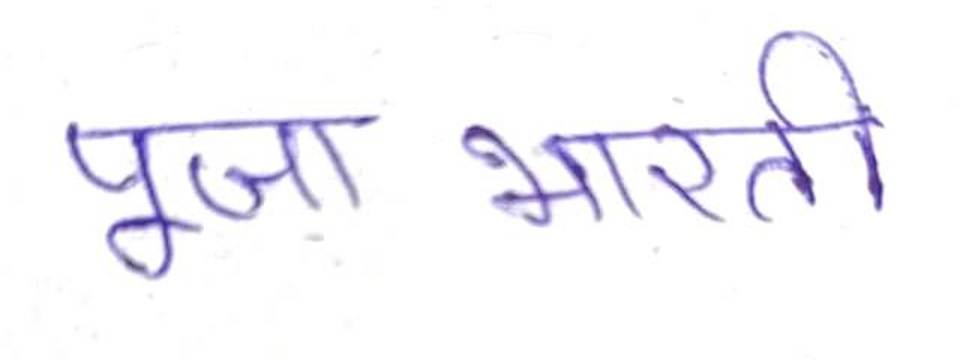 पूजा भारती